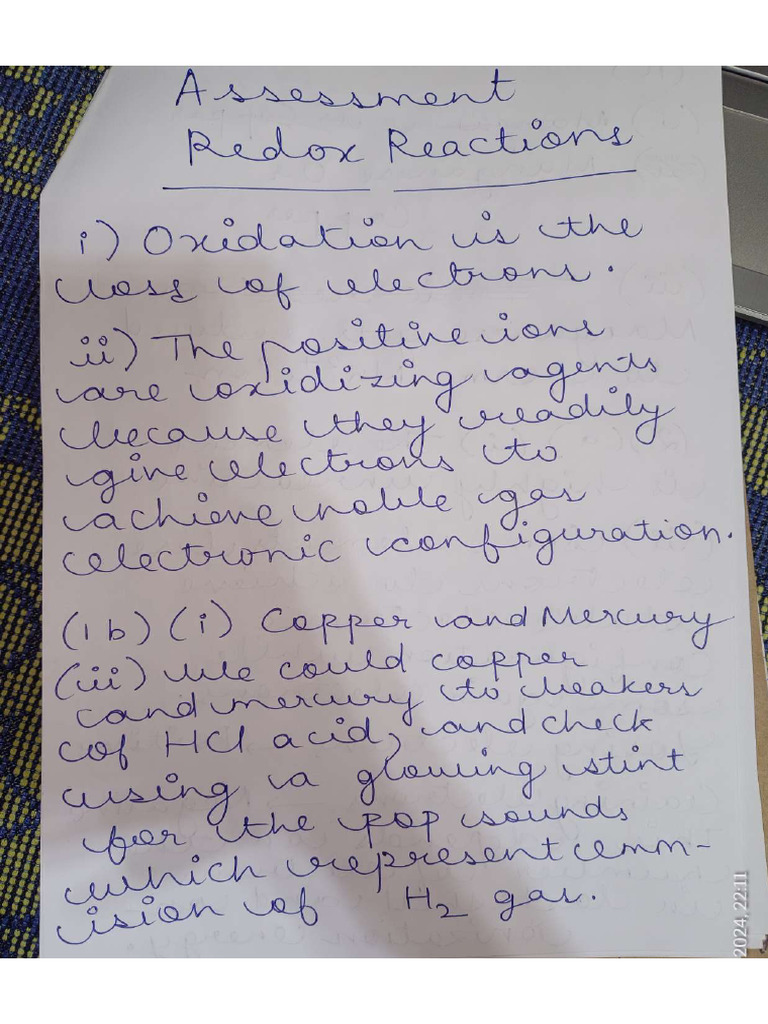 Assessment
Redox Reactions
i) Oxidation is the
loss of electrons.
ii) The positive ions
are oxidizing agents
because they readily
give electrons to
achieve noble gas
electronic configuration.
(1b) (i) Copper and Mercury
(iii) We could copper
and mercury to beakers
of HCl acid, and check
using a glowing stint
for the pop sounds
which represent emm-
ision of H2 gas.
2024.22:11